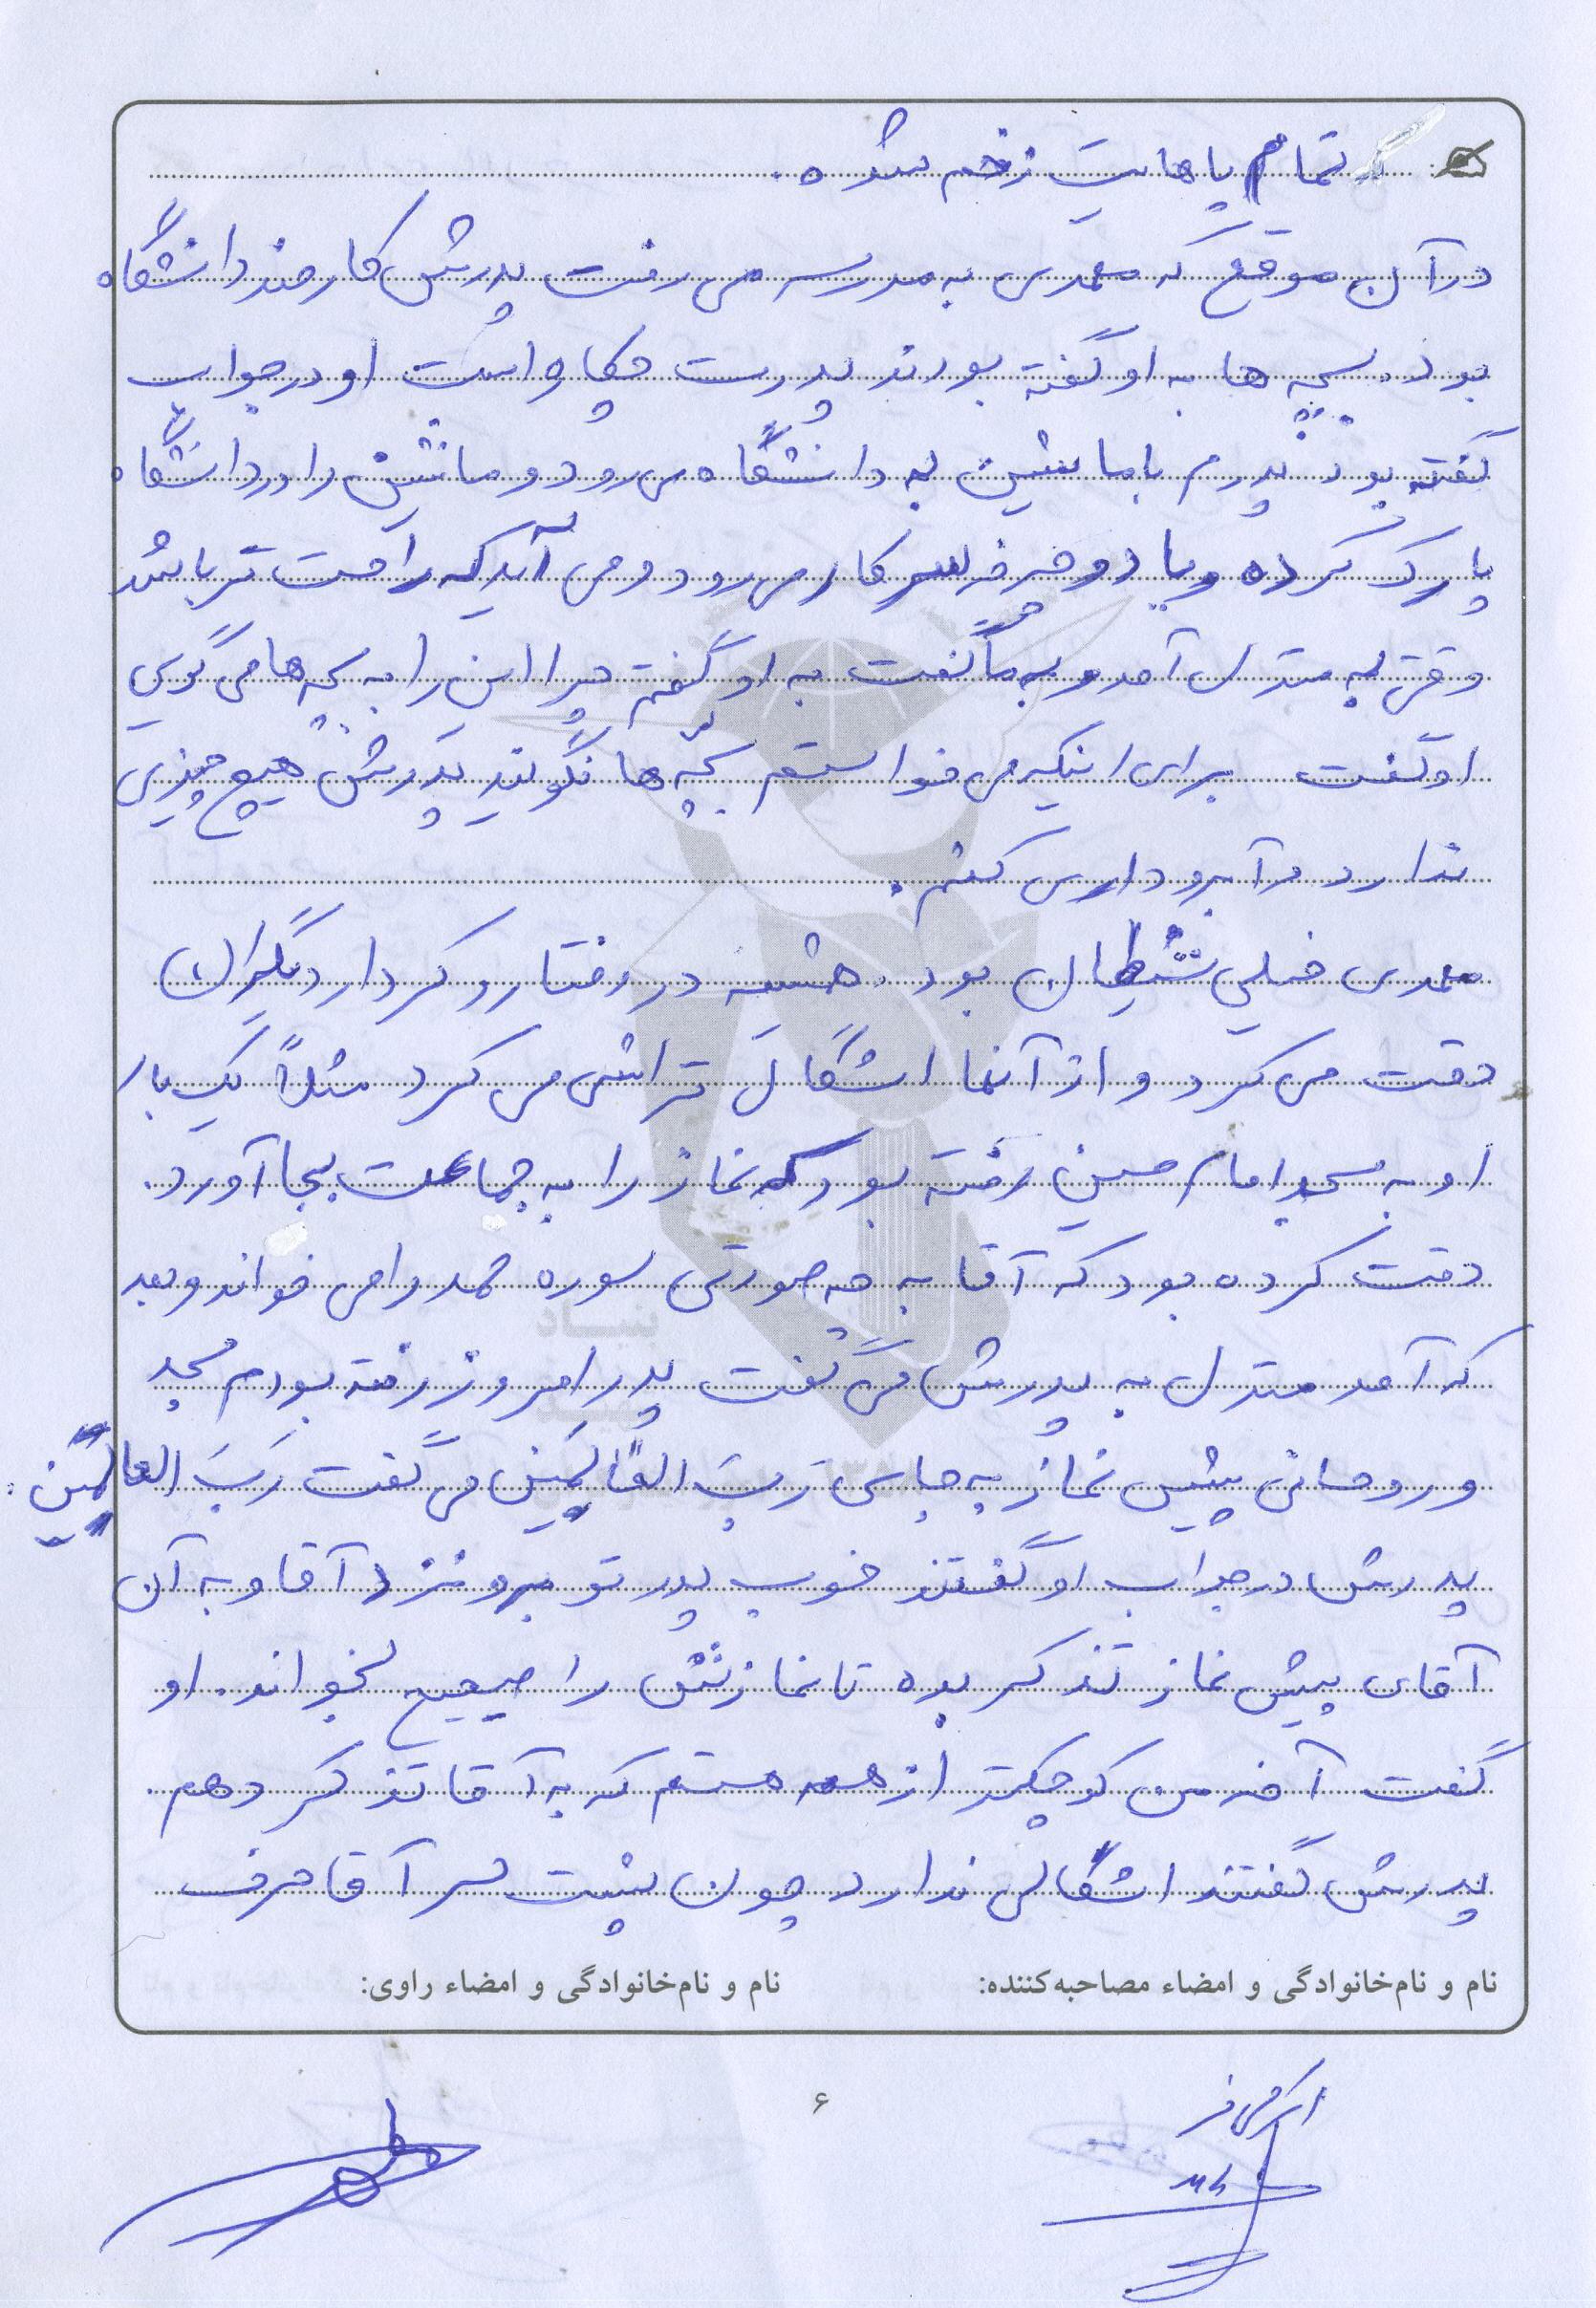 تمام پاهایت زخم شده.
در آن موقع که مهدی به مدرسه می رفت پدرش کارمند دانشگاه
بود. بچه ها به او گفته بودند پدرت چکاره است او در جواب
گفته بود پدرم با ماشین به دانشگاه می رود و ماشین را در دانشگاه
پارک کرده و با دوچرخه سر کار می رود و می آید که راحت تر باشد
وقتی به منزل آمد و به ما گفت به او گفتم چرا این را به بچه ها می گویی
او گفت برای اینکه می خواستم بچه ها نگویند پدرش هیچ چیزی
ندارد و آبروداری کنم.
مهدی خیلی شیطان بود. همیشه در رفتار و کردار دیگران
دقت می کرد و از آنها اشکال تراشی می کرد مثلاً یک بار
او به مسجد امام حسین رفته بود که نماز را به جماعت بجا آورد.
دقت کرده بود که آقا به چه صورتی سوره حمد را می خواند و بعد
که آمد منزل به پدرش می گفت پدر امروز رفته بودم مسجد
و روحانی پیش نماز به جای رَبِّ العالَمین می گفت رَبَّ العالِمین.
پدرش در جواب او گفتند خوب پدر تو برو نزد آقا و به آن
آقای پیش نماز تذکر بده تا نمازش را صحیح بخواند. او
گفت آخر من کوچکتر از همه هستم که به آقا تذکر دهم.
پدرش گفتند اشکالی ندارد چون پشت سر آقا حرف
نام و نام‌خانوادگی و امضاء مصاحبه‌کننده: نام و نام‌خانوادگی و امضاء راوی:
۶